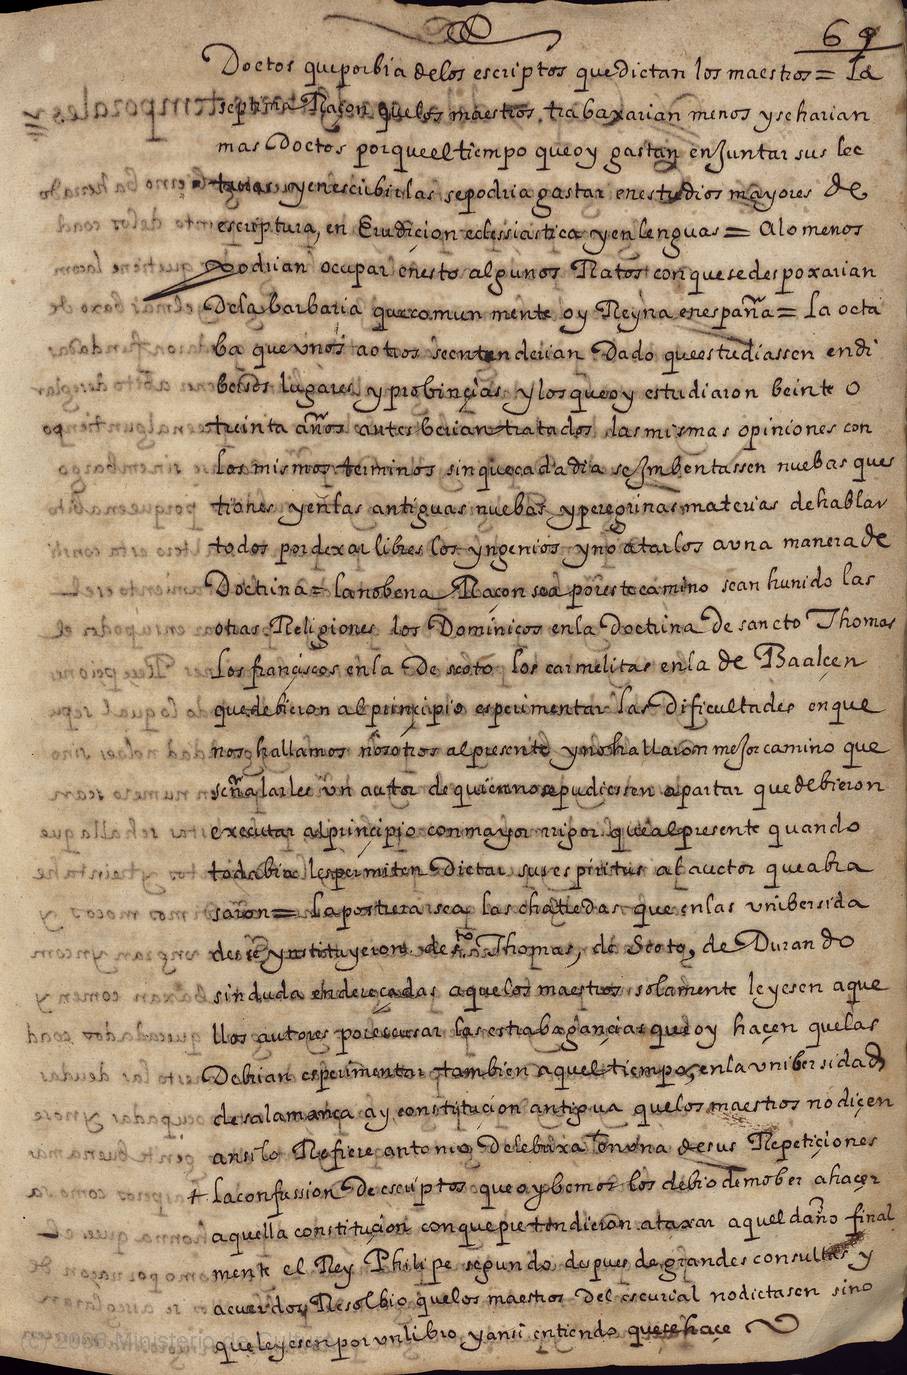 69
Doctos que por bia de los escriptos que dictan los maestros = La
septima Raçon que los maestros trabaxarian menos y se harian
mas Doctos porque el tiempo que oy gastan en Juntar sus lec
turas y en escribirlas se podria gastar en estudios mayores de
escriptura, en Erudicion eclessiastica y en lenguas = Alomenos
podrian ocupar en esto algunos Ratos con que se despoxarian
De la barbaria que comun mente oy Reyna en españa = La octa
ba que vnos a otros se entenderian Dado que estudiassen en di
bersos lugares y probinçias y los que oy estudiaron beinte o
treinta años antes berian tratados las mismas opiniones con
Los mismos terminos sin que cada dia se Jmbentassen nuebas ques
tiones y en las antiguas nuebas y peregrinas materias de hablar
todos por dexar libres los yngenios y no atarlos a vna manera de
Doctrina = la nobena Raçon sea por este camino se an hunido las
otras Religiones los Dominicos en la Doctrina De sancto Thomas
Los françiscos en la De scoto los carmelitas en la de Baalçen
que debieron al prinçipio esperimentar las Dificultades en que
nos hallamos nosotros al presente y no hallaron mejor camino que
señalarles vn autor de quien no se pudiessen apartar que debieron
executar al prinçipio con mayor rigor que al presente quando
todabia les permiten Dictar sus espiritus al auctor que abra
saron = La postrera sea las chatedas que en las vnibersida
des se ynstituyeron de sto Thomas, de Scoto, de Durando
sin duda endereçadas a que los maestros solamente leyesen aque
llos autores por escusar las estrabagançias que oy haçen que las
Debian esperimentar tambien aquel tiempo, en la vnibersidad
de salamança ay constituçion antigua que los maestros no diçen
ansi lo Refiere antonio De lebrixa en vna de sus Repetiçiones
+ La confussion De escriptos que oy bemos los debio de mober a haçer
aquella constituçion con que pretendieron ataxar aquel daño final
mente el Rey Philipe segundo despues de grandes consultas y
acuerdos Resolbio que los maestros Del escurial no dictasen sino
que leyesen por vn libro y ansi entiendo que se haçe